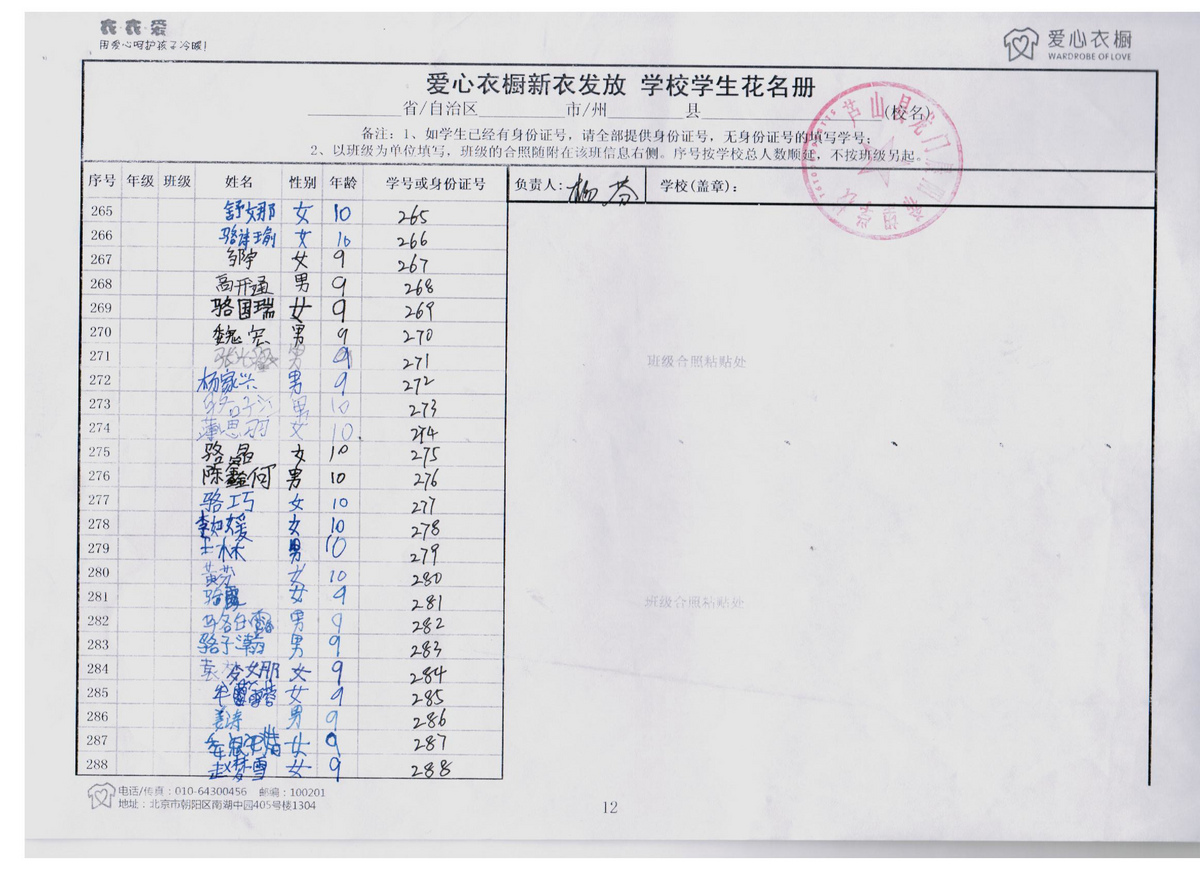 衣衣爱
用爱心呵护孩子冷暖!
爱心衣橱
WARDROBE OF LOVE
爱心衣橱新衣发放 学校学生花名册
省/自治区 市/州 县 (校名)
备注：1、如学生已经有身份证号，请全部提供身份证号，无身份证号的填写学号；
2、以班级为单位填写，班级的合照随附在该班信息右侧。序号按学校总人数顺延，不按班级另起。
芦山县龙门 希望学校
序号 年级 班级 姓名 性别 年龄 学号或身份证号 负责人: 杨芬 学校(盖章):
265 舒娜 女 10 265
266 骆诗瑜 女 10 266
267 邹宇 女 9 267
268 高开通 男 9 268
269 骆国瑞 女 9 269
270 魏宏 男 9 270
271 男 9 271
班级合照粘贴处
272 杨家兴 男 9 272
273 男 10 273
274 思羽 女 10 274
275 骆晶 女 10 275
276 陈鑫何 男 10 276
277 骆巧 女 10 277
278 女 10 278
279 男 10 279
280 黄芬 女 10 280
281 骆 女 9 281
班级合照粘贴处
282 男 9 282
283 骆子瀚 男 9 283
284 女 9 284
285 女 9 285
286 姜涛 男 9 286
287 女 9 287
288 赵梦雪 女 9 288
电话/传真：010-64300456 邮编：100201
地址：北京市朝阳区南湖中园405号楼1304
12